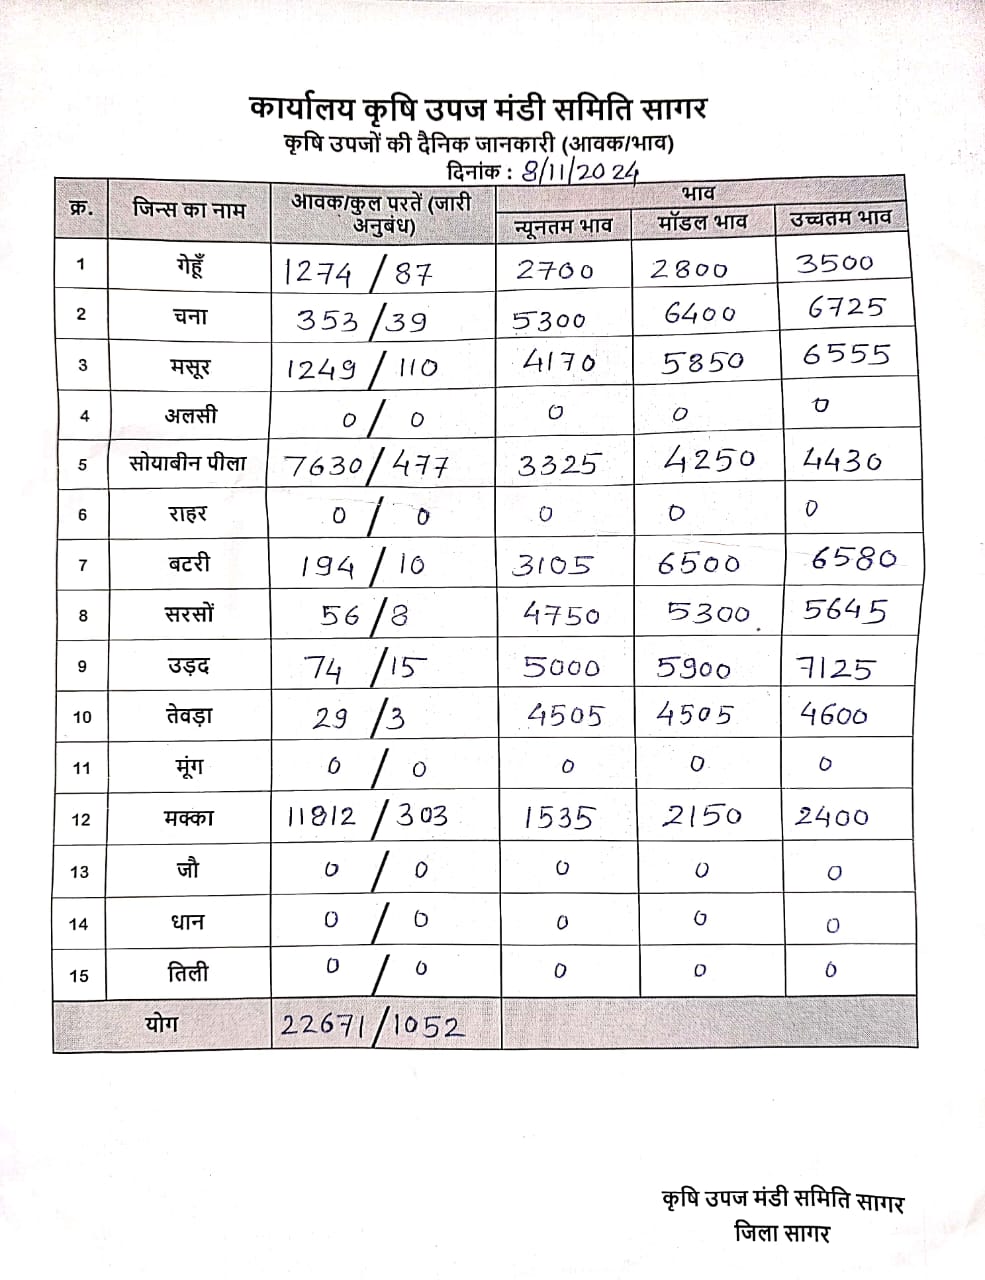 कार्यालय कृषि उपज मंडी समिति सागर
कृषि उपजों की दैनिक जानकारी (आवक/भाव)
दिनांक : 8/11/2024
क्र. जिन्स का नाम आवक/कुल परतें (जारी अनुबंध) भाव
न्यूनतम भाव मॉडल भाव उच्चतम भाव
1 गेहूँ 1274 / 87 2700 2800 3500
2 चना 353 / 39 5300 6400 6725
3 मसूर 1249 / 110 4170 5850 6555
4 अलसी 0 / 0 0 0 0
5 सोयाबीन पीला 7630 / 477 3325 4250 4430
6 राहर 0 / 0 0 0 0
7 बटरी 194 / 10 3105 6500 6580
8 सरसों 56 / 8 4750 5300 5645
9 उड़द 74 / 15 5000 5900 7125
10 तेवड़ा 29 / 3 4505 4505 4600
11 मूंग 0 / 0 0 0 0
12 मक्का 11812 / 303 1535 2150 2400
13 जौ 0 / 0 0 0 0
14 धान 0 / 0 0 0 0
15 तिली 0 / 0 0 0 0
योग 22671 / 1052
कृषि उपज मंडी समिति सागर
जिला सागर